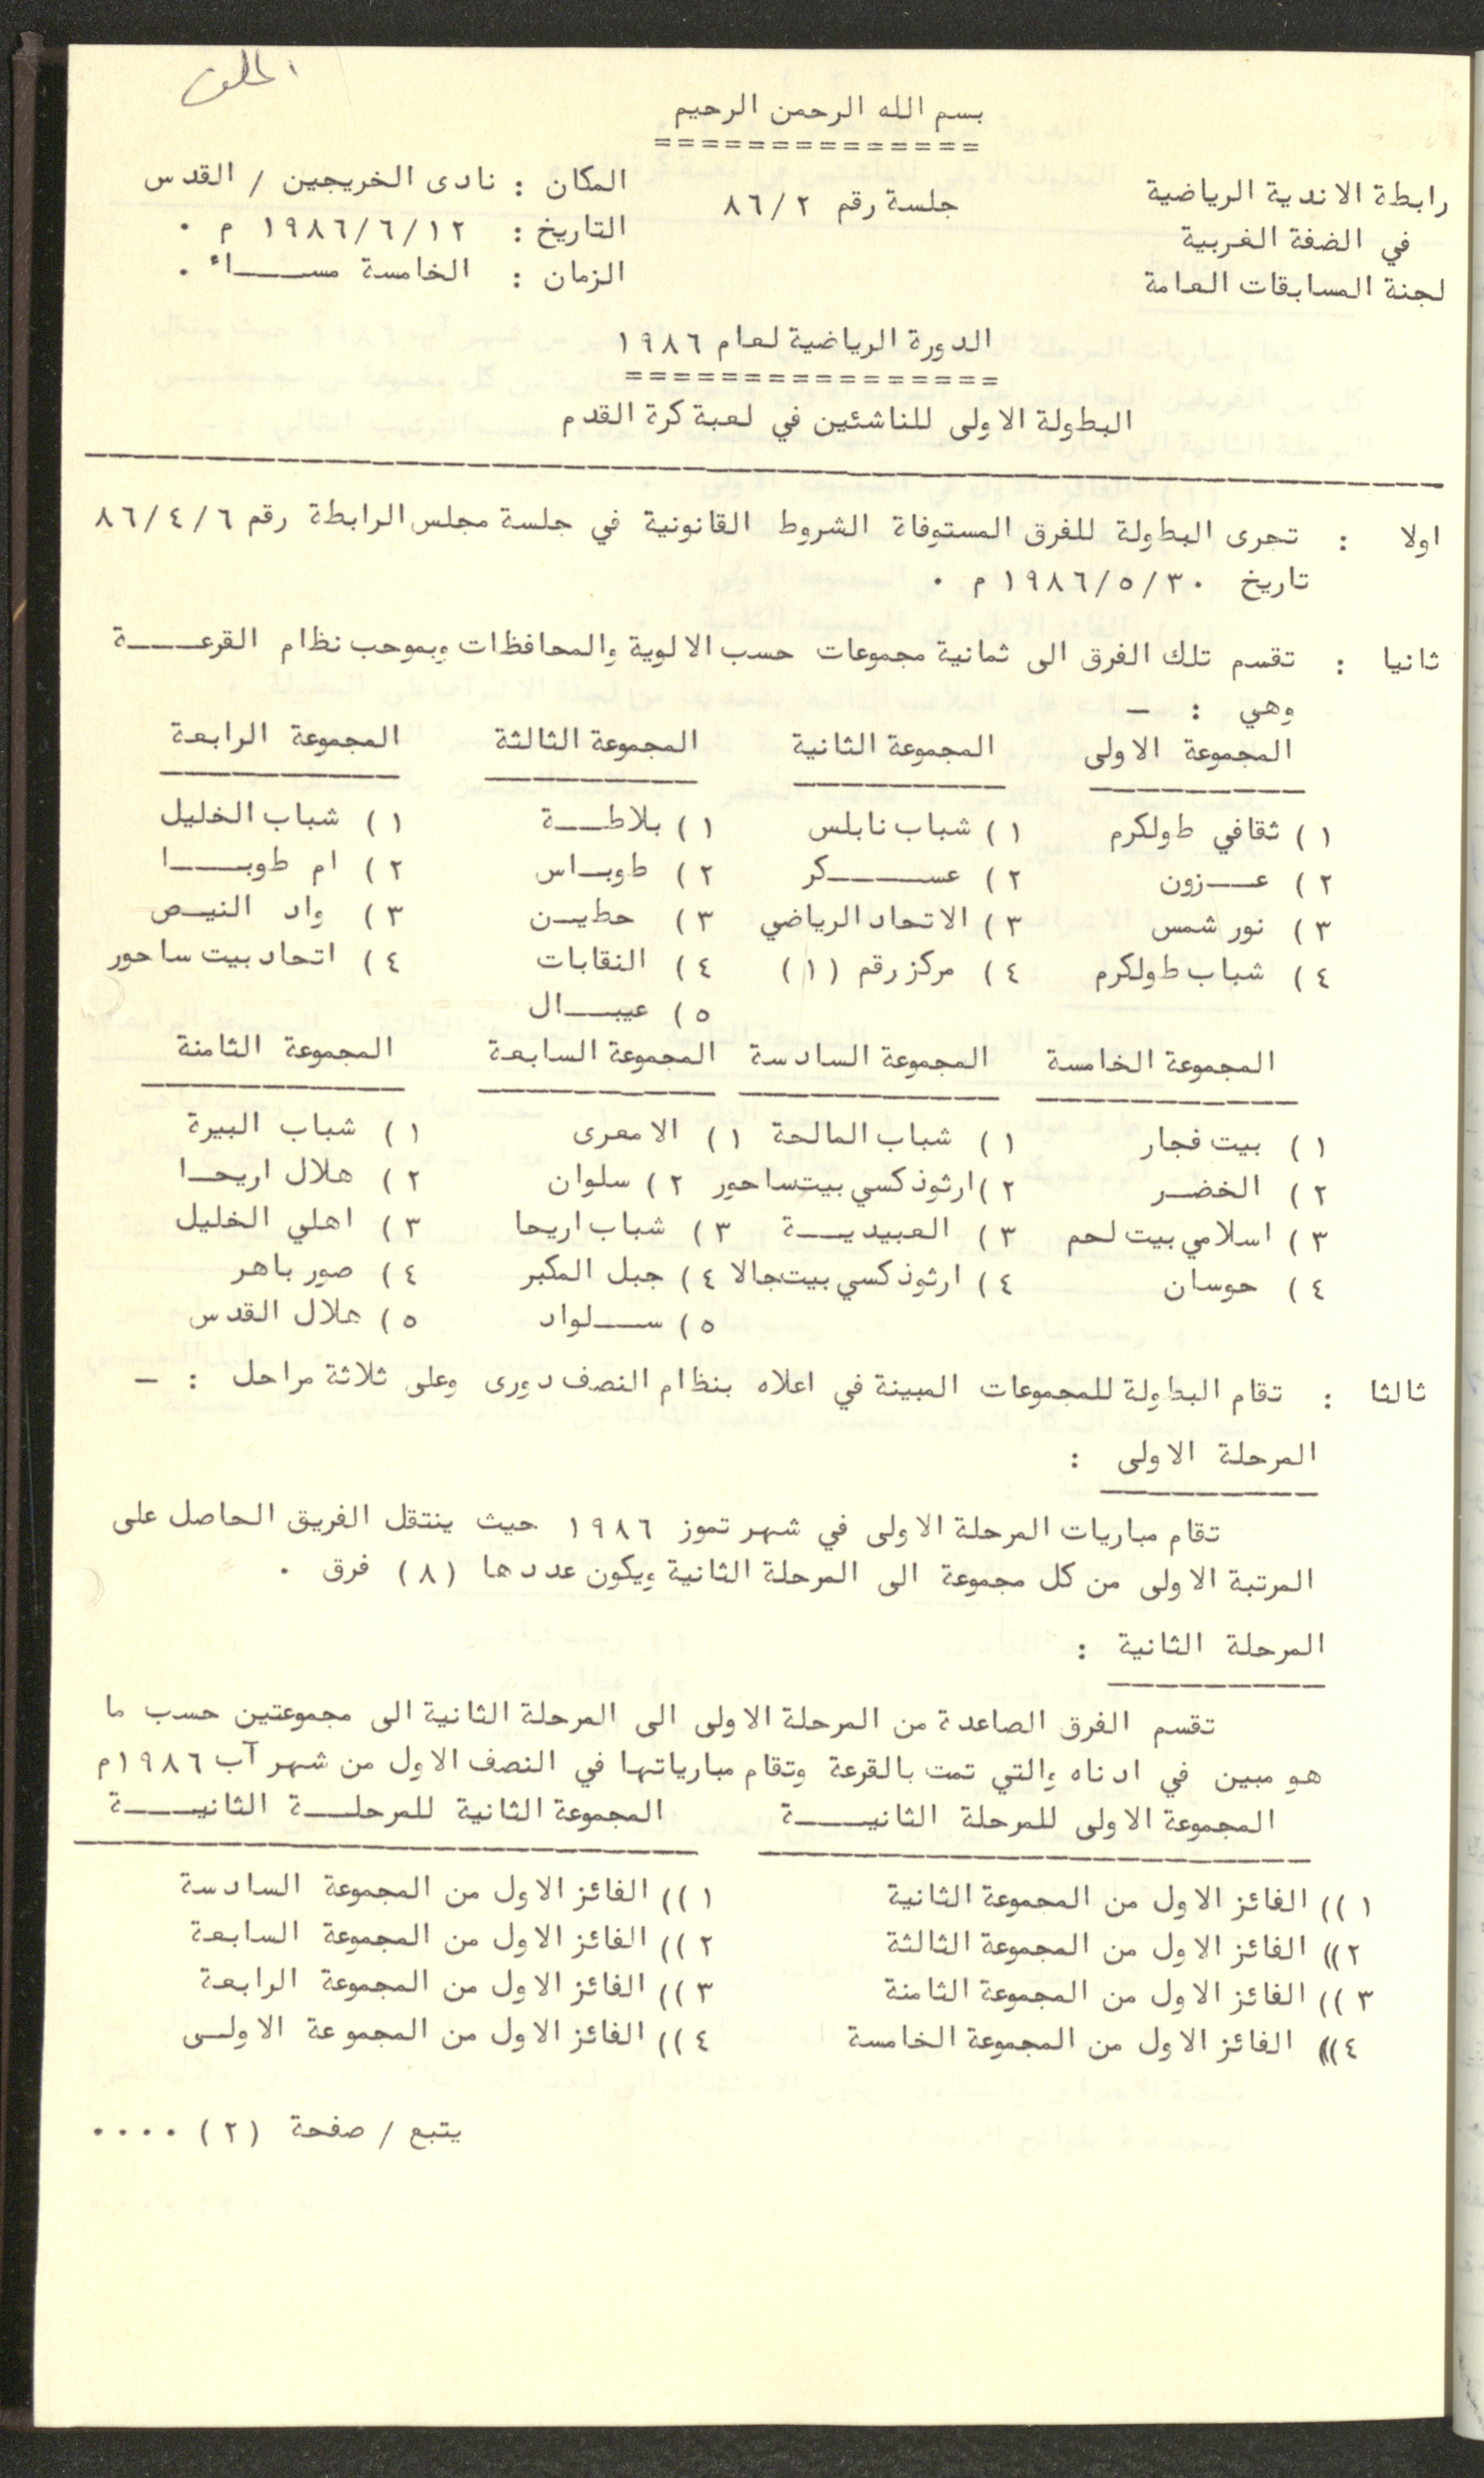 الملف
بسم الله الرحمن الرحيم
==============
رابطة الاندية الرياضية
في الضفة الغربية
لجنة المسابقات العامة
جلسة رقم ٨٦/٢
المكان : نادى الخريجين / القدس
التاريخ : ١٩٨٦/٦/١٢ م ٠
الزمان : الخامسة مســـاء ٠
الدورة الرياضية لعام ١٩٨٦
================
البطولة الاولى للناشئين في لعبة كرة القدم
اولا : تجرى البطولة للفرق المستوفاة الشروط القانونية في جلسة مجلس الرابطة رقم ٨٦/٤/٦
تاريخ ١٩٨٦/٥/٣٠ م ٠
ثانيا : تقسم تلك الفرق الى ثمانية مجموعات حسب الالوية والمحافظات وبموجب نظام القرعـــة
وهي : -
المجموعة الاولى المجموعة الثانية المجموعة الثالثة المجموعة الرابعة
١) ثقافي طولكرم ١) شباب نابلس ١) بلاطـــة ١) شباب الخليل
٢) عـــزون ٢) عســـــكر ٢) طوبـاس ٢) ام طوبـــا
٣) نور شمس ٣) الاتحاد الرياضي ٣) حطيــن ٣) واد النيـص
٤) شباب طولكرم ٤) مركز رقم (١) ٤) النقابات ٤) اتحاد بيت ساحور
٥) عيبـــال
المجموعة الخامسة المجموعة السادسة المجموعة السابعة المجموعة الثامنة
١) بيت فجار ١) شباب المالحة ١) الامعرى ١) شباب البيرة
٢) الخضـر ٢) ارثوذكسي بيتساحور ٢) سلوان ٢) هلال اريحـا
٣) اسلامي بيت لحم ٣) العبيديـــة ٣) شباب اريحا ٣) اهلي الخليل
٤) حوسان ٤) ارثوذكسي بيتجالا ٤) جبل المكبر ٤) صور باهر
٥) ســـلواد ٥) هلال القدس
ثالثا : تقام البطولة للمجموعات المبينة في اعلاه بنظام النصف دورى وعلى ثلاثة مراحل : -
المرحلة الاولى :
تقام مباريات المرحلة الاولى في شهر تموز ١٩٨٦ حيث ينتقل الفريق الحاصل على
المرتبة الاولى من كل مجموعة الى المرحلة الثانية ويكون عددها (٨) فرق ٠
المرحلة الثانية :
تقسم الفرق الصاعدة من المرحلة الاولى الى المرحلة الثانية الى مجموعتين حسب ما
هو مبين في ادناه والتي تمت بالقرعة وتقام مبارياتها في النصف الاول من شهر آب ١٩٨٦م
المجموعة الاولى للمرحلة الثانيـــة المجموعة الثانية للمرحلـــة الثانيـــة
١)) الفائز الاول من المجموعة الثانية ١)) الفائز الاول من المجموعة السادسة
٢)) الفائز الاول من المجموعة الثالثة ٢)) الفائز الاول من المجموعة السابعة
٣)) الفائز الاول من المجموعة الثامنة ٣)) الفائز الاول من المجموعة الرابعة
٤)) الفائز الاول من المجموعة الخامسة ٤)) الفائز الاول من المجموعة الاولـى
يتبع / صفحة (٢) ٠٠٠٠